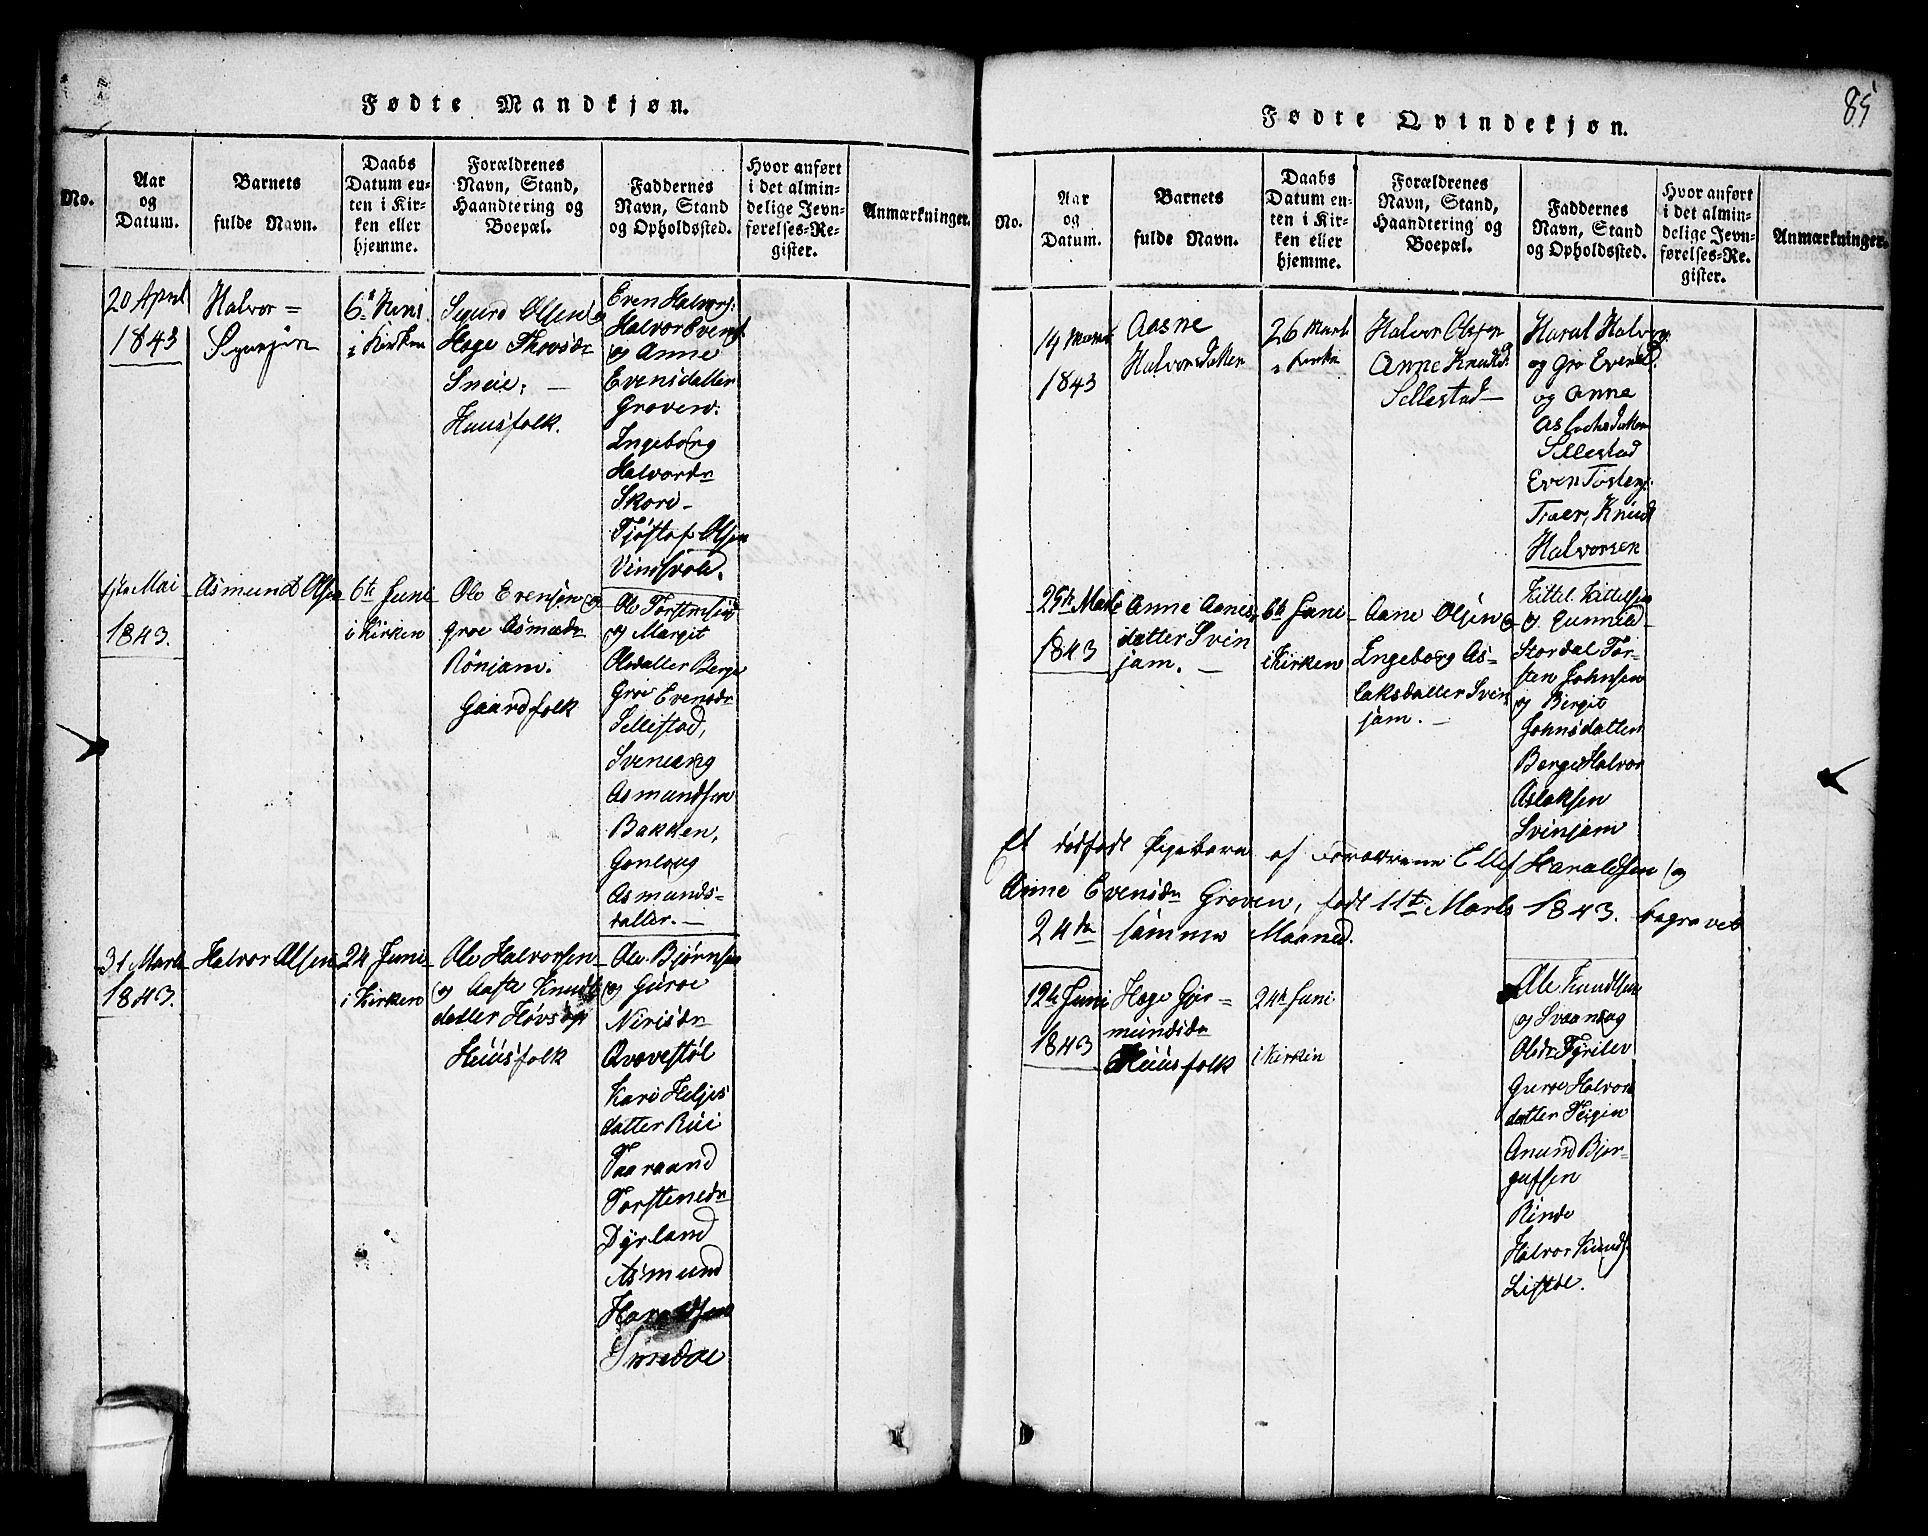 Fødte Mandkjøn.
No.
Aar
og
Datum.
Barnets
fulde Navn.
Daabs
Datum en-
ten i Kir-
ken eller
hjemme.
Forældrenes
Navn, Stand,
Haandtering og
Boepæl.
Faddernes
Navn, Stand
og Opholdssted.
Hvor anført
i det almin-
delige Jevn-
førelses-Re-
gister.
Anmærkninger.
20 April
1843
Halvor =
6te Juni
i Kirken
Sigurd Olsen og
Hege
Sneie. —
Huusfolk.
Even Halvors:
Halvor Evens
og Anne
Evensdatter
Groven.
Ingeborg
Halvorsdr
Skori –
Tjøstof Olsen
Vindsvold.
Mai
1843.
Asmund Olsen
6te Juni
i Kirken
Ole Evensen og
Groe Asmdr
Rönjam.
Gaardfolk
Ole Torstensen
og Margit
Olsdatter Berge
Groe Evensdr
Sellistad,
Sveinung
Asmundsen
Bakken,
Gonlaug
Asmunds-
datter. —
31 Marts
1843.
Halvor Olsen
24 Juni
i Kirken
Ole Halvorsen
og Aaste Knuds
datter
Huusfolk
Ole Bjørnsen
og Guroe
Nirisdr
Qvovestöl
Kari Heljes
datter Rui
Taaraand
Torstensdr
Dyrland
Asmund
Haraldsen
85
Fødte Qvindekjøn.
No.
Aar
og
Datum.
Barnets
fulde Navn.
Daabs
Datum en-
ten i Kir-
ken eller
hjemme.
Forældrenes
Navn, Stand,
Haandtering og
Boepæl.
Faddernes
Navn, Stand
og Opholdssted.
Hvor anført
i det almin-
delige Jevn-
førelses-Re-
gister.
Anmærkninger.
14 Marts
1843
Aasne
Halvorsdatter
26 Marts
i Kirke
Halvor Olsen
Anne Knudsd.
Sellestad —
Haral Halvors:
og Gro Evensd.
og Anne
Aslachsdatter
Sellestad
Even Tostens:
Traer, Knud
Halvorsen
25te Marts
1843
Anne Aanes
datter Svin
jam. —
6te Juni
i Kirken
Aane Olsen og
Ingeborg As-
laksdatter Svin
jam. —
Kittel Kittelsen
og Gunnild
Stordal Tor-
sten Johnsen
og Bergit
Johnsdatter
Berge Halvor
Aslaksen
Svinjam
Et dødfødt Pigebarn af Forældrene Ellef Haraldsen og
Anne Evensdr Groven, født 11te Marts 1843. begravet
24de samme Maaned.
12te Juni
1843
Hæge Gjer=
mundsdr
Huusfolk
24de Juni
i Kirken
Ole Knudsen
og Svanaug
Olsdr Tyrilev
Guroe Halvors
datter Teigen
Anund Bjor-
gufsen
Rinde
Halvor Knuds.
Liftöl.